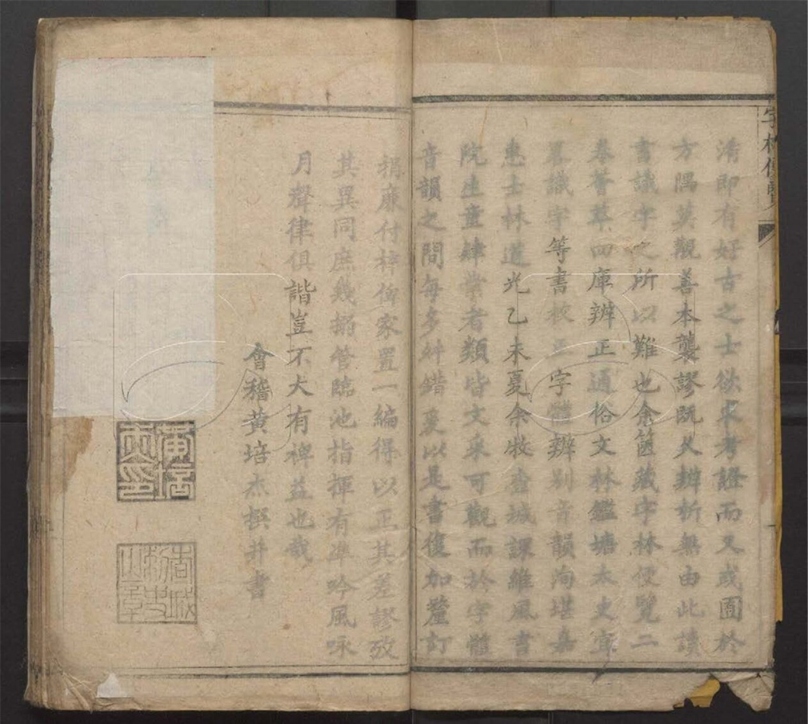 清即有好古之士欲求考證而又或囿於
方隅莫觀善本襲謬既久辨析無由此讀
書識字之所以難也余篋藏字林便覽二
卷薈萃四庫辨正通俗文林鑑塘太史
畧識字等書校正字體辨别音韻洵堪嘉
惠士林道光乙未夏余牧春城課雒風書
院生童肄業者類皆文采可觀而於字體
音韻之間每多舛錯爰以是書復加釐訂
捐廉付梓俾家置一編得以正其差謬攷
其異同庶幾搦管臨池指揮有準吟風咏
月聲律俱諧豈不大有裨益也哉
會稽黃培杰撰并書
黃培杰印
字林便覽